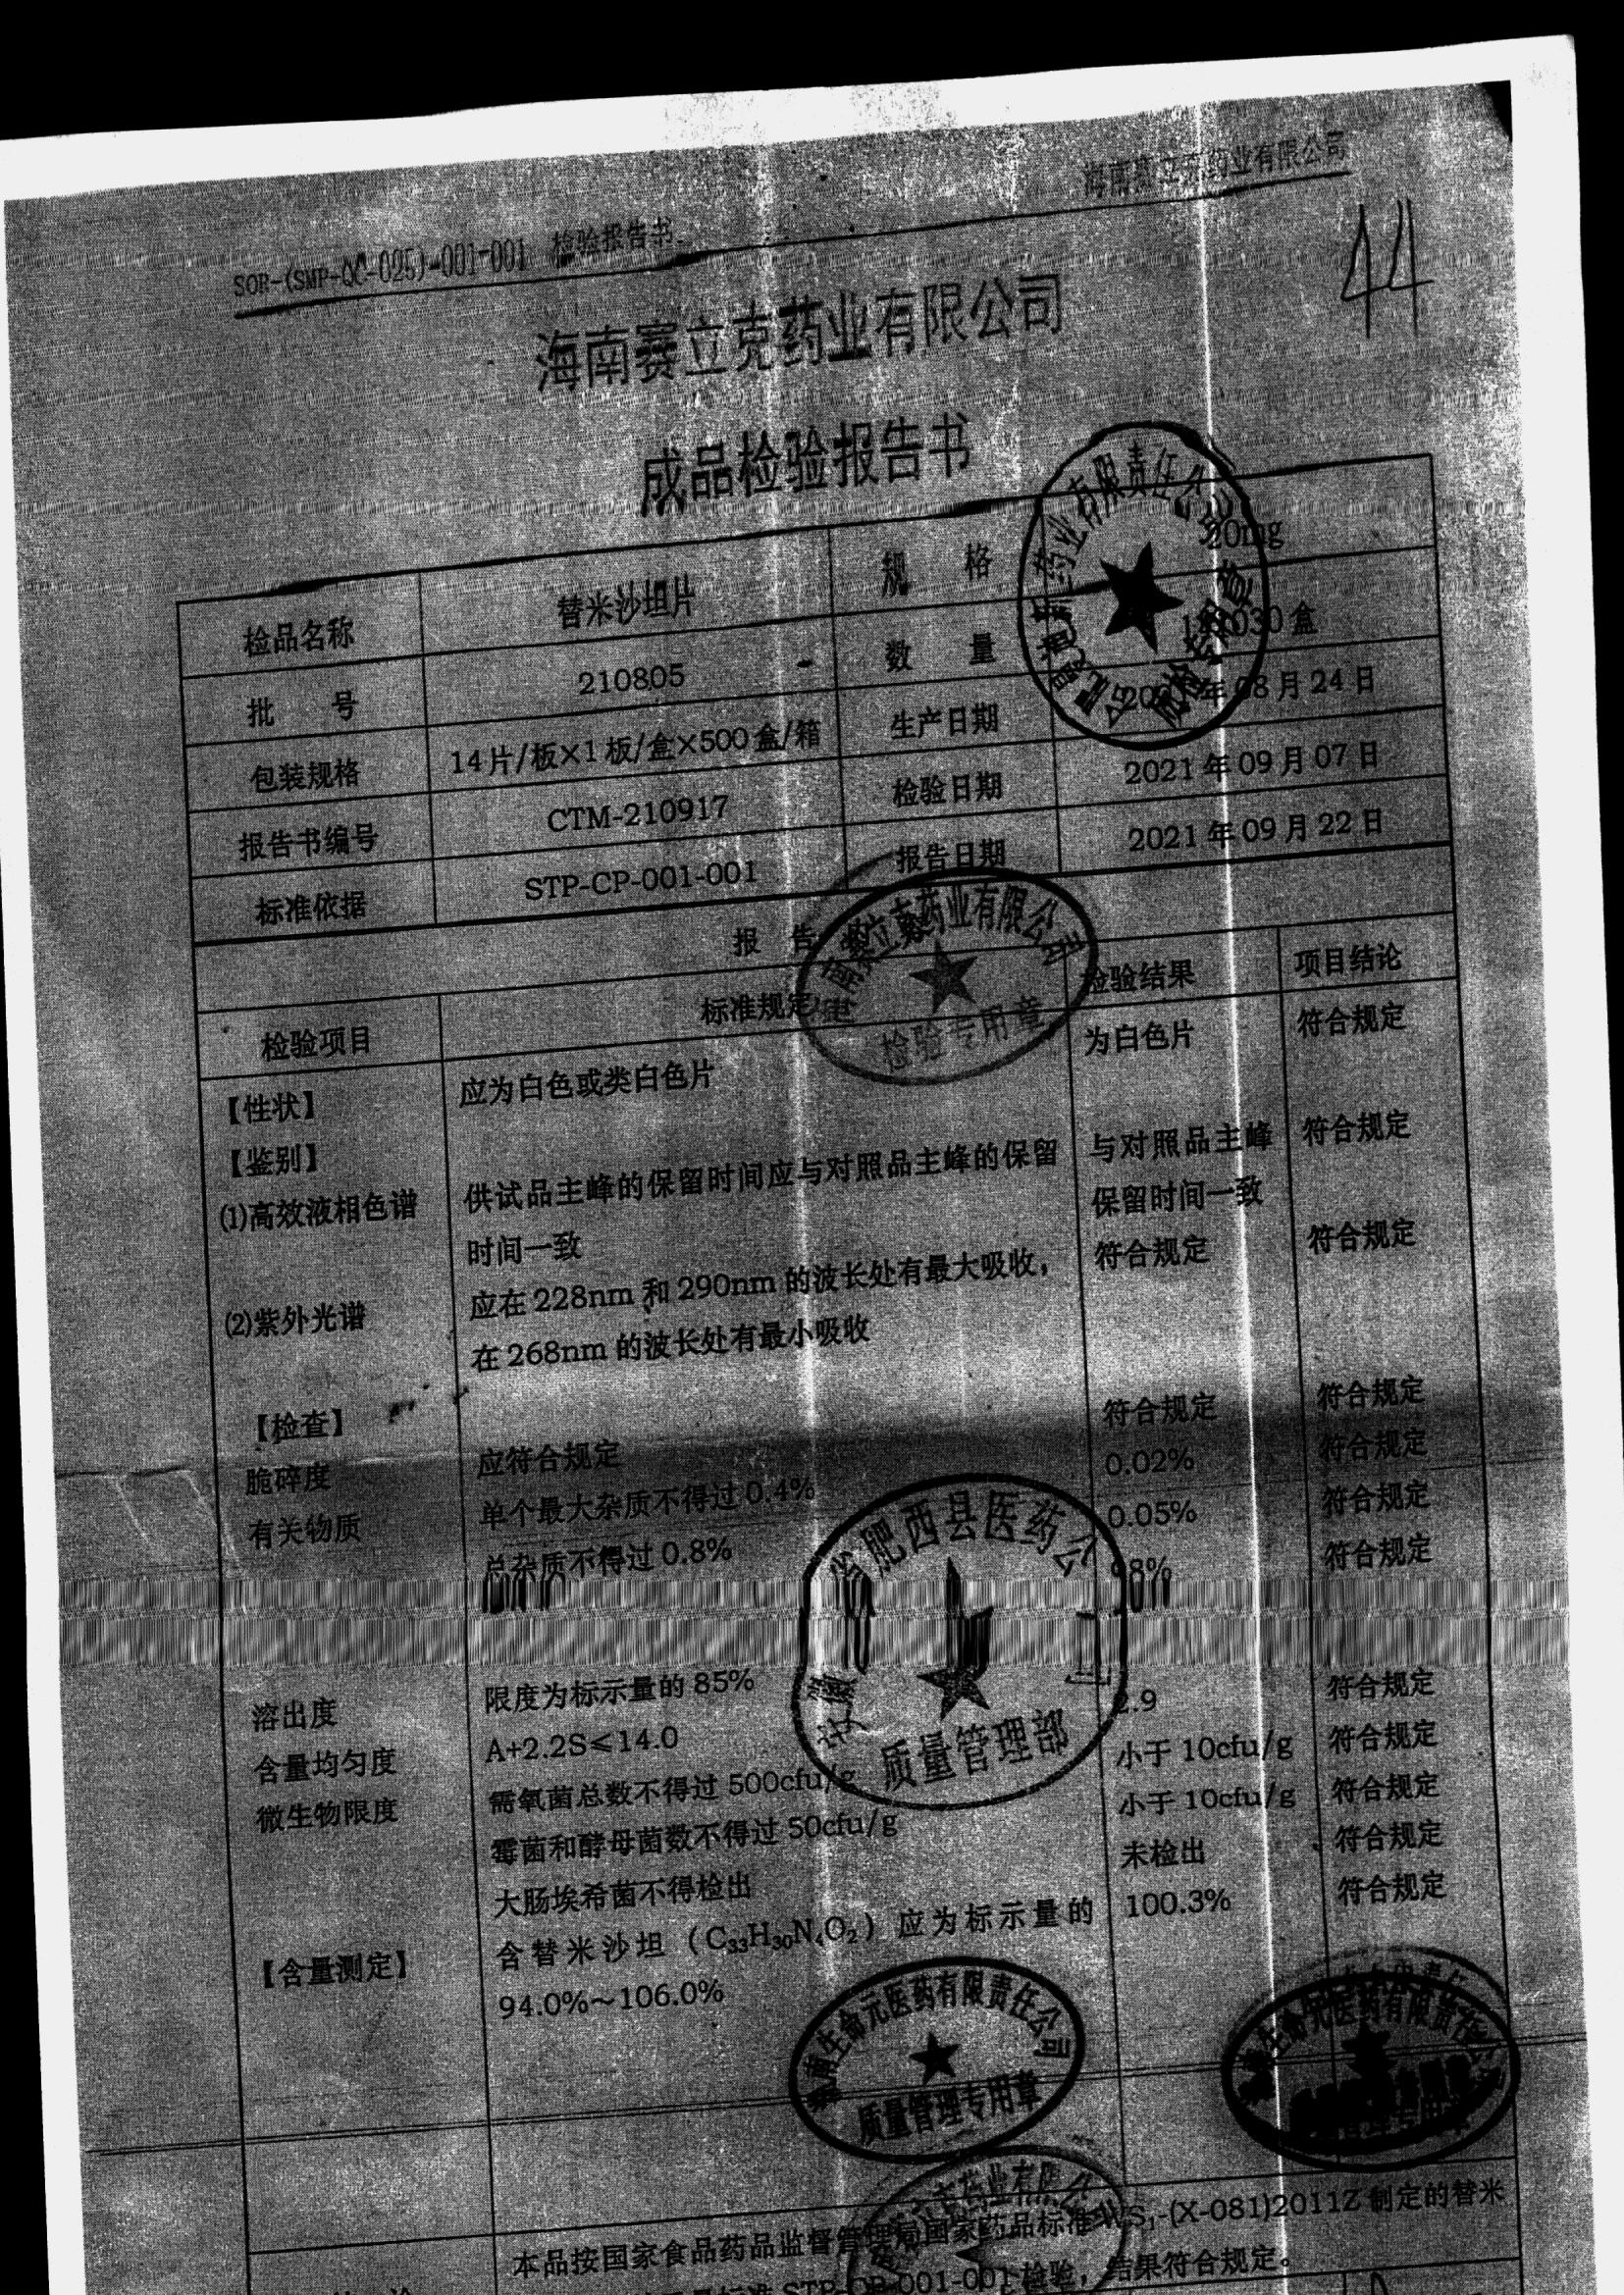 海南赛立克药业有限公司
SOR-(SMP-QC-025)-001-001 检验报告书
44
海南赛立克药业有限公司
成品检验报告书
检品名称 替米沙坦片 规 格 20mg
批 号 210805 数 量 030盒
包装规格 14片/板×1板/盒×500盒/箱 生产日期 年08月24日
报告书编号 CTM-210917 检验日期 2021年09月07日
标准依据 STP-CP-001-001 报告日期 2021年09月22日
报 告
检验项目 标准规定 检验结果 项目结论
【性状】 应为白色或类白色片 为白色片 符合规定
【鉴别】
⑴高效液相色谱 供试品主峰的保留时间应与对照品主峰的保留 与对照品主峰 符合规定
时间一致 保留时间一致
⑵紫外光谱 应在228nm和290nm的波长处有最大吸收， 符合规定 符合规定
在268nm的波长处有最小吸收
【检查】
脆碎度 应符合规定 符合规定 符合规定
有关物质 单个最大杂质不得过0.4% 0.02% 符合规定
总杂质不得过0.8% 0.05% 符合规定
溶出度 限度为标示量的85% 98% 符合规定
含量均匀度 A+2.2S≤14.0 2.9 符合规定
微生物限度 需氧菌总数不得过500cfu/g 小于10cfu/g 符合规定
霉菌和酵母菌数不得过50cfu/g 小于10cfu/g 符合规定
大肠埃希菌不得检出 未检出 符合规定
【含量测定】 含替米沙坦（C₃₃H₃₀N₄O₂）应为标示量的 100.3% 符合规定
94.0%～106.0%
本品按国家食品药品监督管理局国家药品标准WS₁-(X-081)2011Z制定的替米
STP-CP-001-001检验，结果符合规定。
药业有限责任公司
海南赛立克药业有限公司
检验专用章
安徽省肥西县医药公司
质量管理部
生命元医药有限责任公司
质量管理专用章
生命元医药有限责任公司